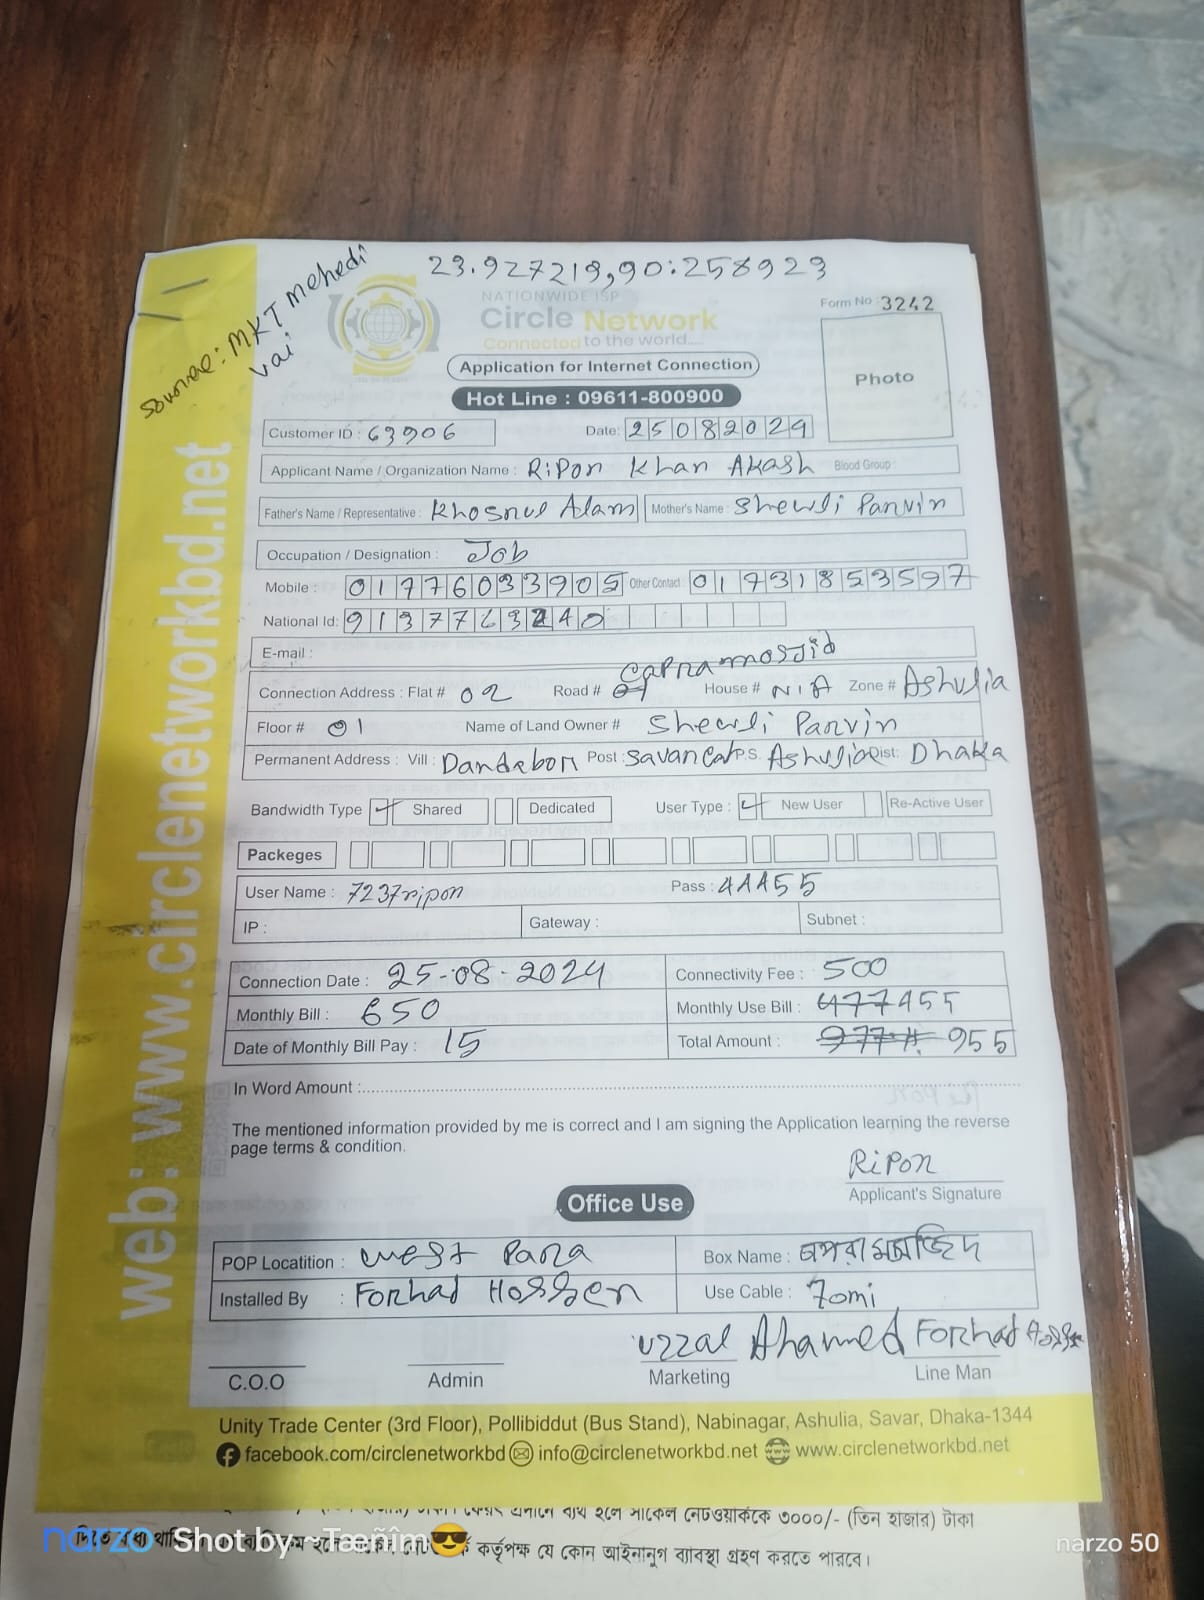 23.927219,90:258923
Source: MKT mehedi
vai
NATIONWIDE ISP
Circle Network
Connected to the world....
Form No : 3242
Application for Internet Connection
Photo
Hot Line : 09611-800900
Customer ID : 63906 Date: 25082024
Applicant Name / Organization Name : Ripon Khan Akash Blood Group :
Father's Name / Representative : Khosnul Alam Mother's Name : Shewli Parvin
Occupation / Designation : Job
Mobile : 01776033905 Other Contact 01731853597
National Id: 9137763240
E-mail :
Connection Address : Flat # 02 Road # Capramosjid House # N/A Zone # Ashulia
Floor # 01 Name of Land Owner # Shewli Parvin
Permanent Address : Vill : Dandabon Post : Savar Cat P.S. Ashulia Dist: Dhaka
Bandwidth Type Shared Dedicated User Type : New User Re-Active User
Packeges
User Name : 7237ripon Pass : 44455
IP : Gateway : Subnet :
Connection Date : 25-08-2024 Connectivity Fee : 500
Monthly Bill : 650 Monthly Use Bill : 477 455
Date of Monthly Bill Pay : 15 Total Amount : 977 955
In Word Amount :
The mentioned information provided by me is correct and I am signing the Application learning the reverse
page terms & condition.
Ripon
Applicant's Signature
Office Use
POP Locatition : West Para Box Name : চাপরা মসজিদ
Installed By : Forhad Hossen Use Cable : 70mi
Uzzal Ahamed Forhad
C.O.O Admin Marketing Line Man
Unity Trade Center (3rd Floor), Pollibiddut (Bus Stand), Nabinagar, Ashulia, Savar, Dhaka-1344
facebook.com/circlenetworkbd info@circlenetworkbd.net www.circlenetworkbd.net
web: www.circlenetworkbd.net
ব্যর্থ হলে সার্কেল নেটওয়ার্ককে ৩০০০/- (তিন হাজার) টাকা
কর্তৃপক্ষ যে কোন আইনানুগ ব্যাবস্থা গ্রহণ করতে পারবে।
narzo Shot by ~Taeñîm😎 narzo 50